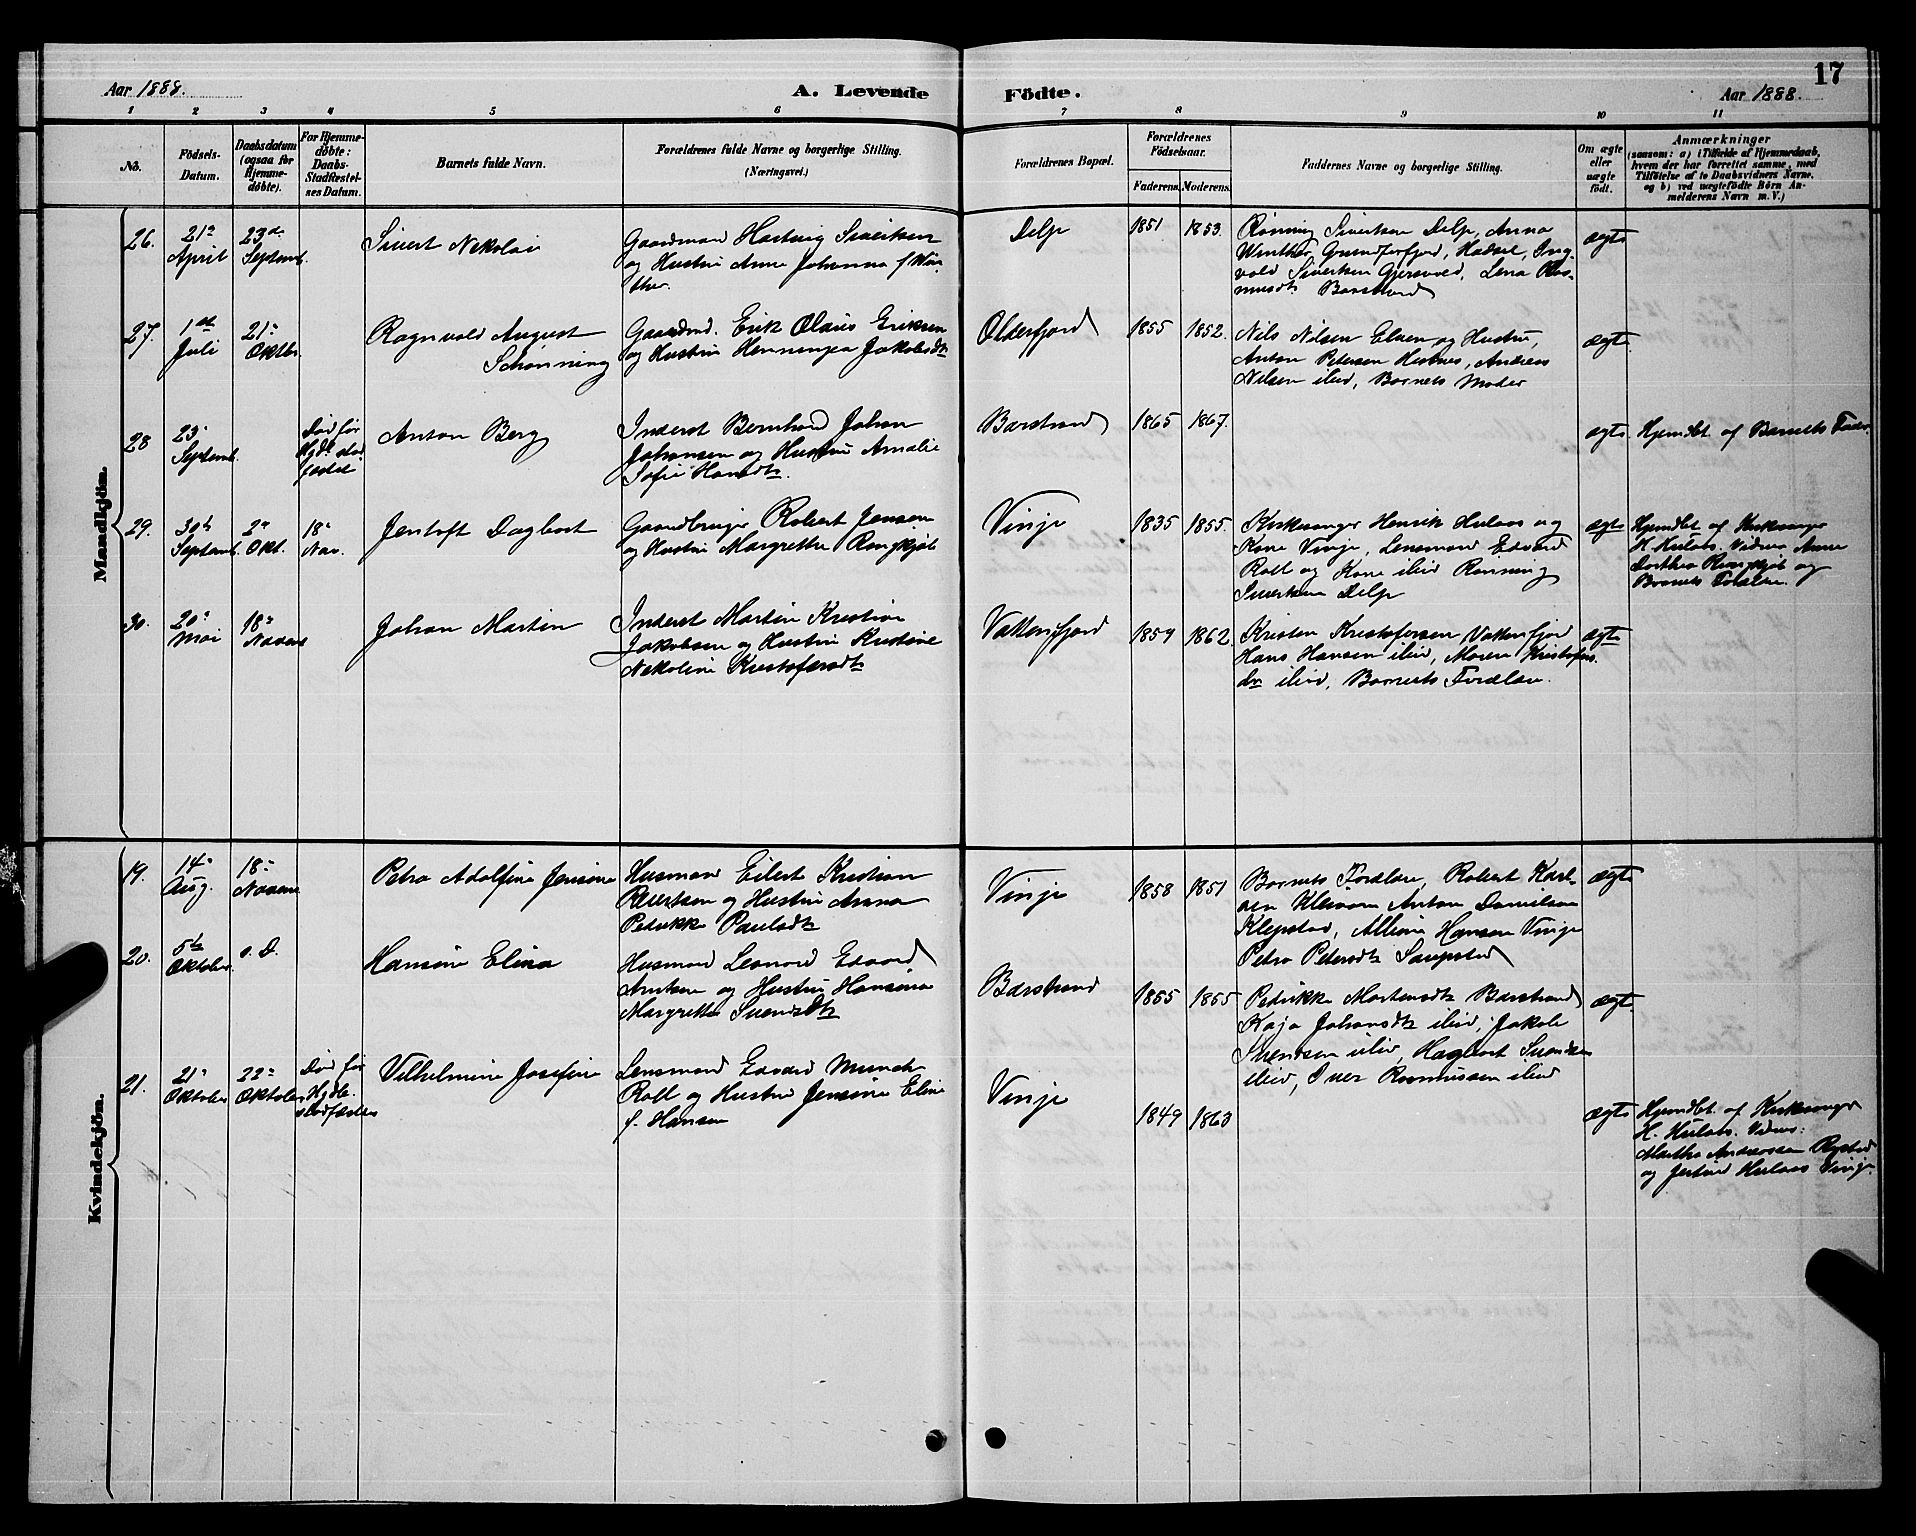 17
Aar 1888.
A. Levende Födte.
Aar 1888.
1 2 3 4 5 6 7 8 9 10 11
No.
Födsels-
Datum.
Daabsdatum
(ogsaa for
Hjemme-
døbte).
For Hjemme-
døbte:
Daabs-
Stadfæstel-
ses Datum.
Barnets fulde Navn.
Forældrenes fulde Navne og borgerlige Stilling.
(Næringsvei.)
Forældrenes Bopæl.
Forældrenes
Födselsaar.
Faderens. Moderens.
Faddernes Navne og borgerlige Stilling.
Om ægte
eller
uægte
født.
Anmærkninger
(saasom: a) i Tilfælde af Hjemmedaab,
hvem der har forrettet samme, med
Tilføielse af to Daabsvidners Navne,
og b) ved uægtefödte Börn An-
melderens Navn m. V.)
Mandkjön.
26.
21de
April
23de
Septemb.
Sivert Nikolai
Gaardmand Hartvig Sivertsen
og Hustru Anna Johanna f. Win-
ther.
Delp
1851
1853.
Rönning Sivertsen Delp, Anna
Winther, Grundfarfjord, Hadsel, Ing-
vald Sivertsen Gjersvold, Lena Ras-
musdt. Barstrand
ægte
27.
1ste
Juli
21-
Oktbr
Ragnvald August
Schönning
Gaardmd. Erik Olaus Eriksen
og Hustru Henningea Jakobsdt
Olderfjord
1855
1852.
Nils Nilsen Elven og Hustru,
Anton Petersen Husnes, Andreas
Nilsen ibid, Barnets Moder
ægte.
28
23-
Septemb.
Död før
Hjdb. stad
fæstet
Anton Berg
Inderst Bernhard Johan
Johansen og Hustru Amalie
Sofie Hansdt.
Barstrand
1865
1867.
ægte.
Hjemdbt. af Barnets Fader.
29.
30te
Septemb.
2-
Okt.
18-
Nov.
Jentoft Dagbart
Gaardbruger Robert Jensen
og Hustru Margrethe Ringkjöb
Vinje
1835
1855.
Kirkesanger Henrik Hulaas og
Kone Vinje, Lensmand Edvard
Roll og Kone ibid Rönning
Sivertsen Delp
ægte
Hjemdbt af Kirksanger
H. Hulaas. Vidner Anne
Dorthea Ringkjöb og
Barnets Forældre.
30.
20-
Mai
18-
Novem
Johan Martin
Inderst Martin Kristian
Jakobsen og Hustru Kristine
Nikoline Kristofersdt
Vattenfjord
1859
1862
Kristen Kristofersen Vattenfjord
Hans Hansen ibid, Maren Kristofers-
dtr ibid, Barnets Forældre.
ægte
Kvindekjön.
19.
14-
Aug.
18-
Novem
Petra Adolfine Jensine
Husmand Eilert Kristian
Eilertsen og Hustru Anna
Petrikke Paulsdt
Vinje
1858
1851
Barnets Forældre, Robert Karl-
sen Kleivan Anton Danielsen
Klepstad, Alliine Hansen Vinje
Petra Petersdt Laupstad
ægte
20.
5te
Oktober.
s. D.
Hansine Elina
Husmand Leonard Edvard
Arntsen og Hustru Hansine
Margrethe Svendsdt
Barstrand
1855
1855
Petrikke Mortensdt Barstrand
Kaja Johansdt ibid, Jakob
Svendsen ibid, Hagbart Svendsen
ibid, Iver Rasmussen ibid
ægte.
21.
21-
Oktober
22-
Oktober
Död før
Hjdb.
stadfæstes
Vilhelmine Josefine
Lensmand Edvard Munch
Roll og Hustru Jensine Eline
f. Hansen
Vinje
1849
1863
ægte
Hjemdbt. af Kirksanger
H. Hulaas. Vidner:
Martha Andersen Rystad
og Jertine Hulaas Vinje.